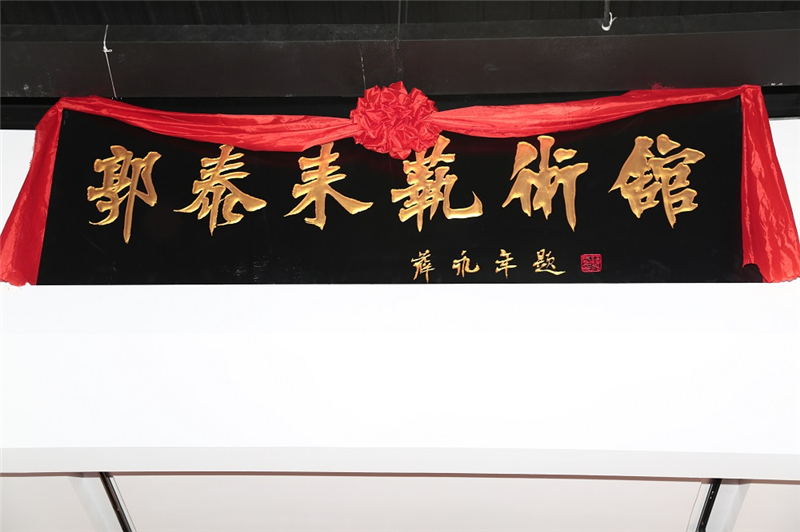 郭泰来藝術館
薛永年题